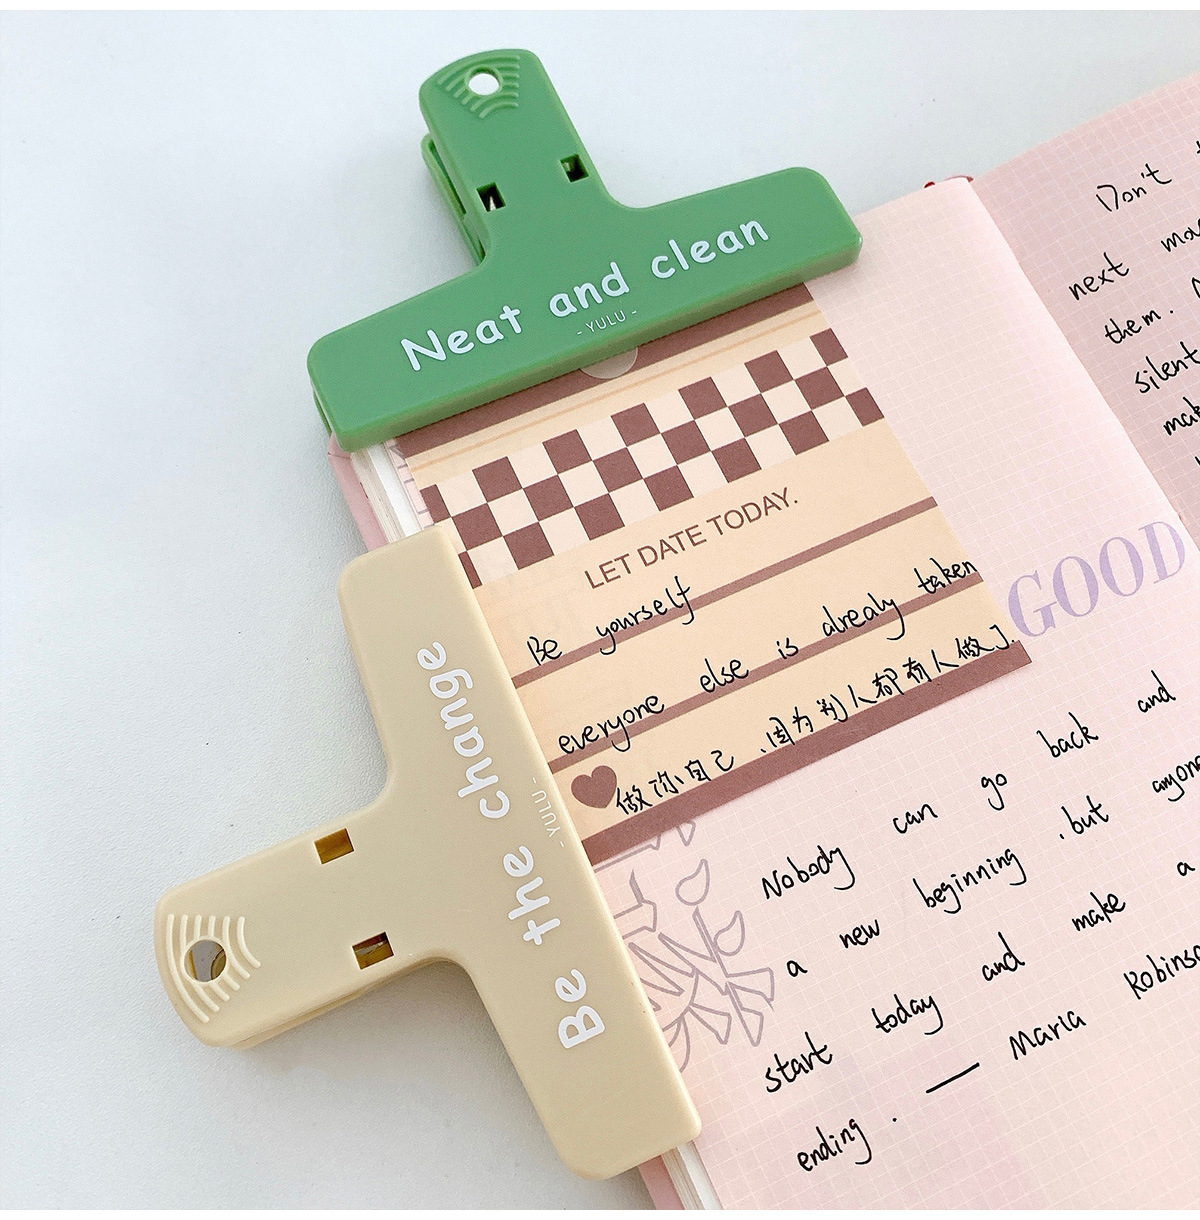 Neat and clean
- YULU -
LET DATE TODAY.
Be yourself
everyone else is alrealy taken
做你自己、因为别人都有人做了.
Be the change
- YULU -
GOOD
Nobody can go back and
a new beginning . but anyone
start today and make a
ending . — Maria Robinso
Don't
next
them.
silent